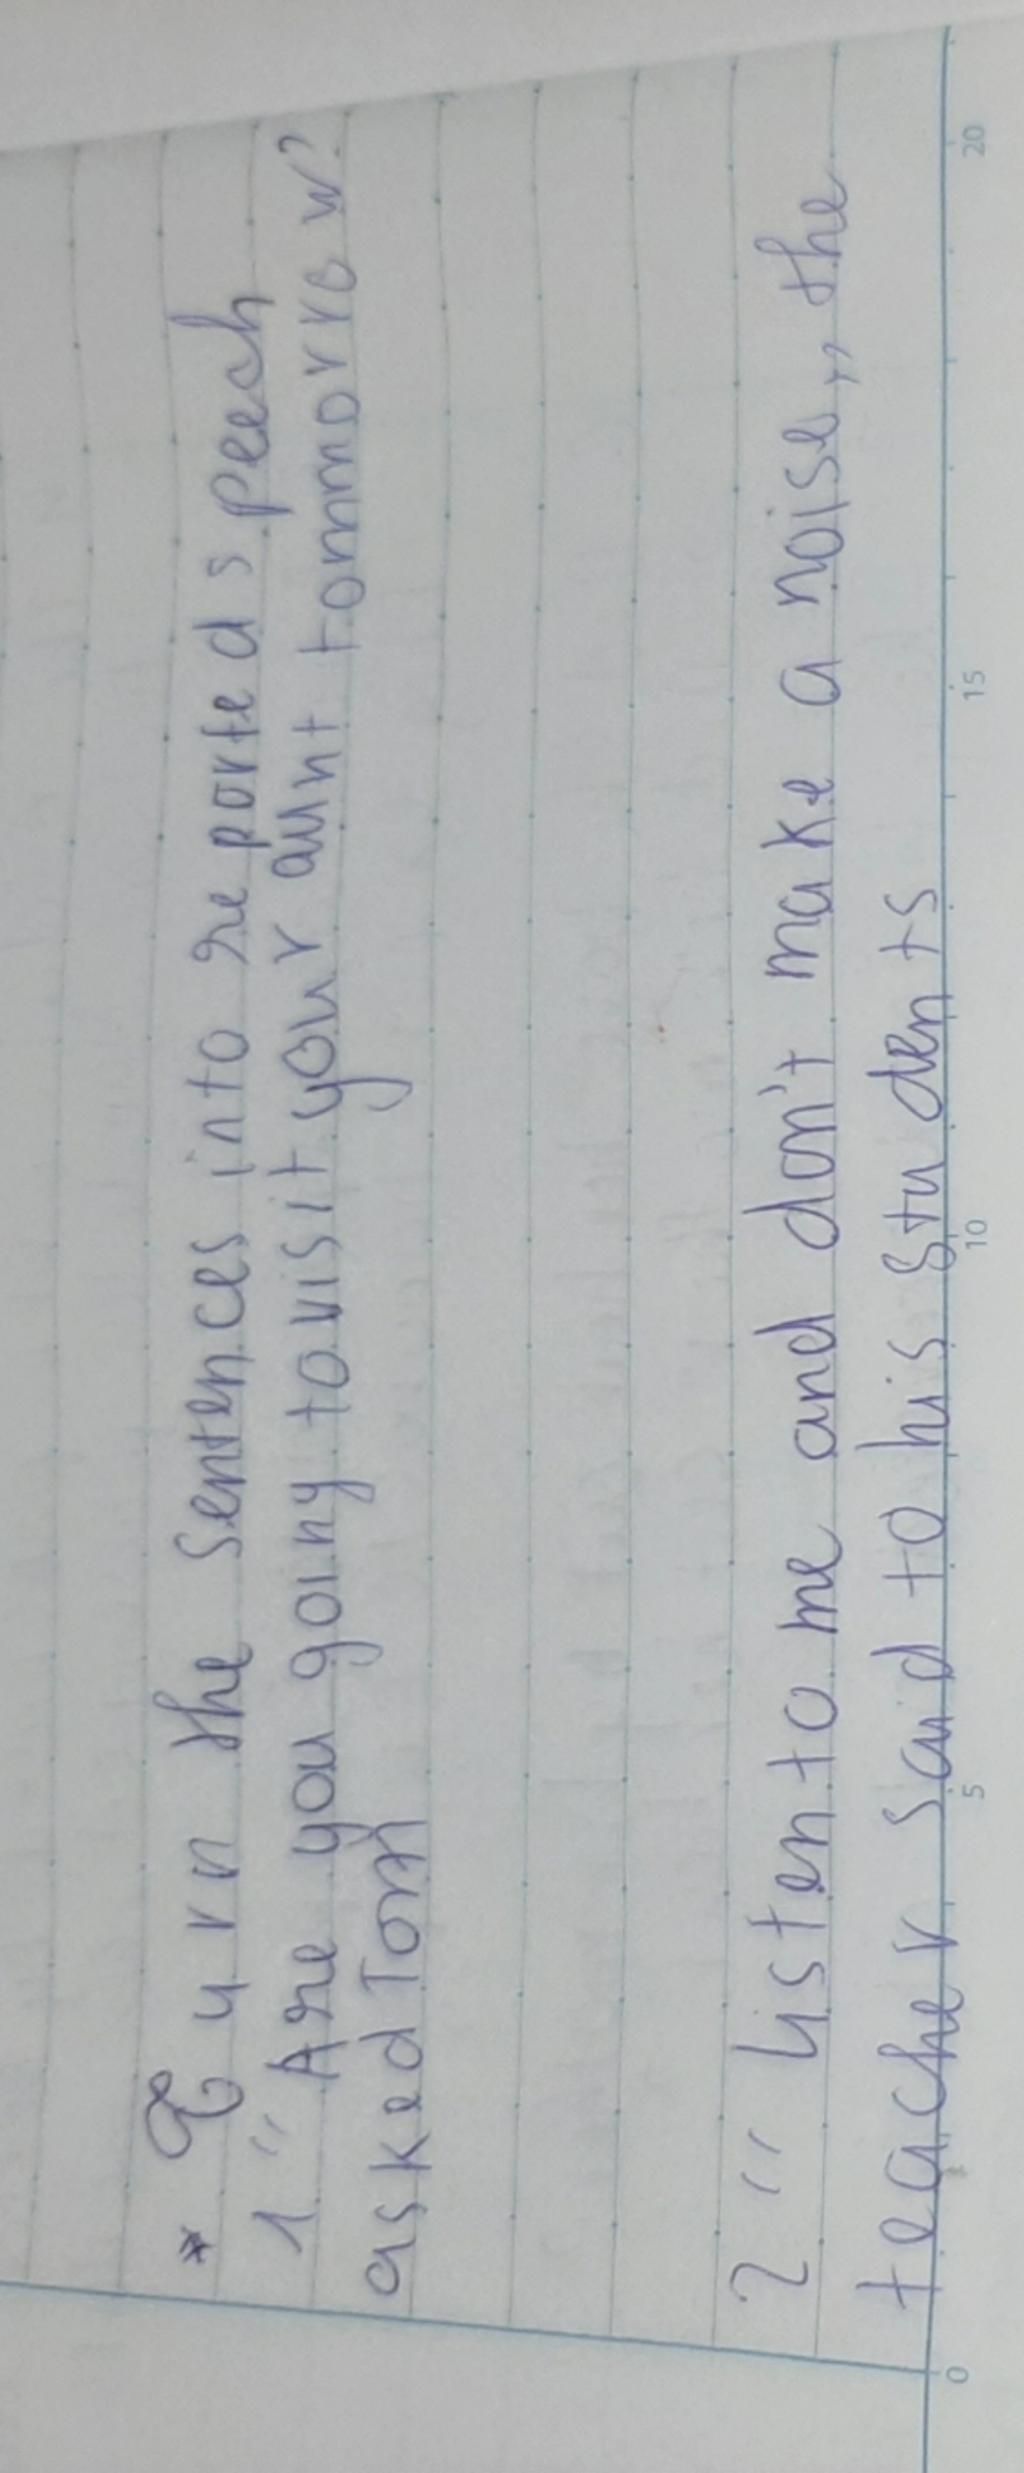 * Turn the sentences into reported speech
1 " Are you going to visit your aunt tommorrow?
asked Tom
2 " Listen to me and don't make a noise,, the
teacher said to his students
0 5 10 15 20